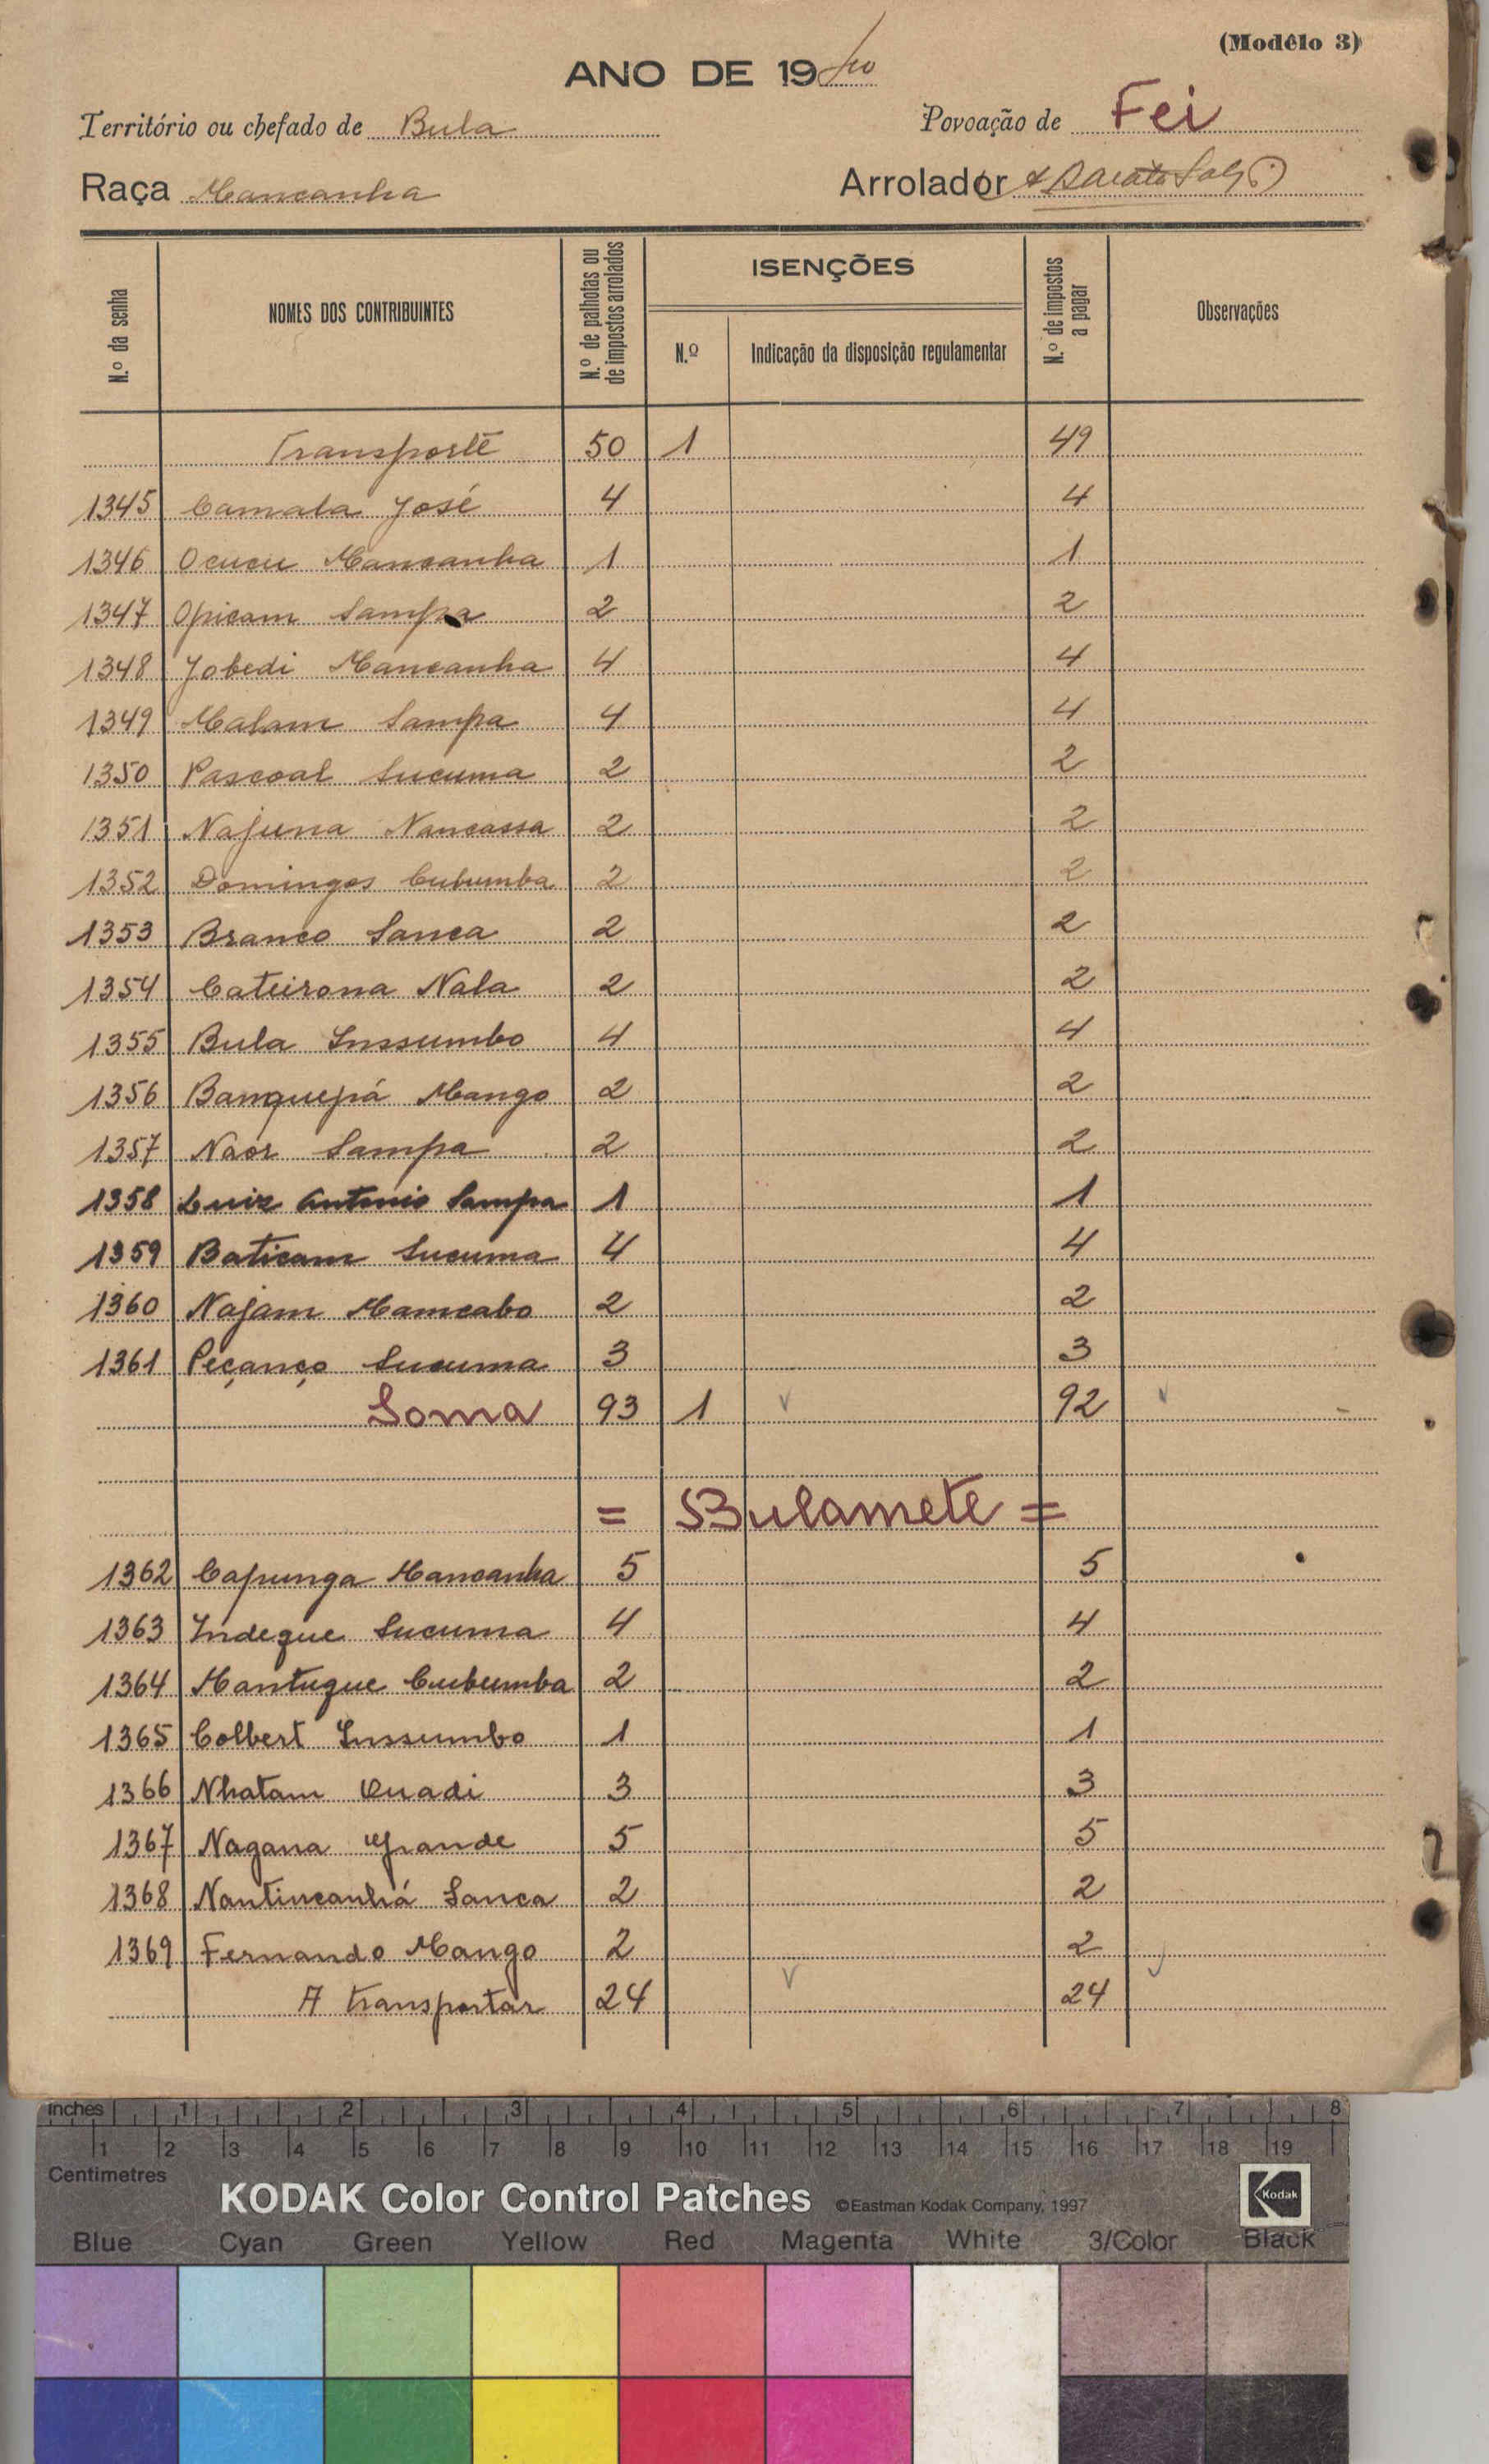 (Modêlo 3)
ANO DE 1940
Território ou chefado de Bula Povoação de Fei
Raça Mancanha Arrolador
N.º da senha NOMES DOS CONTRIBUINTES N.º de palhotas ou de impostos arrolados ISENÇÕES N.º Indicação da disposição regulamentar N.º de impostos a pagar Observações
Transporte 50 1 49
1345 Camala José 4 4
1346 Ocucu Mancanha 1 1
1347 Opicam Sampa 2 2
1348 Jobedi Mancanha 4 4
1349 Malam Sampa 4 4
1350 Pascoal Sucuma 2 2
1351 Najuna Nancassa 2 2
1352 Domingos Cubumba 2 2
1353 Branco Sanca 2 2
1354 Cateirona Nala 2 2
1355 Bula Inssumbo 4 4
1356 Banquepá Mango 2 2
1357 Naor Sampa 2 2
1358 Luiz Antonio Sampa 1 1
1359 Baticam Sucuma 4 4
1360 Najam Mamcabo 2 2
1361 Peçanço Sucuma 3 3
Soma 93 1 92
= Bulamete =
1362 Capunga Mancanha 5 5
1363 Indeque Sucuma 4 4
1364 Mantuque Cubumba 2 2
1365 Colbert Inssumbo 1 1
1366 Nhatam Quadi 3 3
1367 Nagana Grande 5 5
1368 Nantincanhá Sanca 2 2
1369 Fernando Mango 2 2
A transportar 24 24
inches 1 2 3 4 5 6 7 8
1 2 3 4 5 6 7 8 9 10 11 12 13 14 15 16 17 18 19
Centimetres
KODAK Color Control Patches ©Eastman Kodak Company, 1997 Kodak
Blue Cyan Green Yellow Red Magenta White 3/Color Black